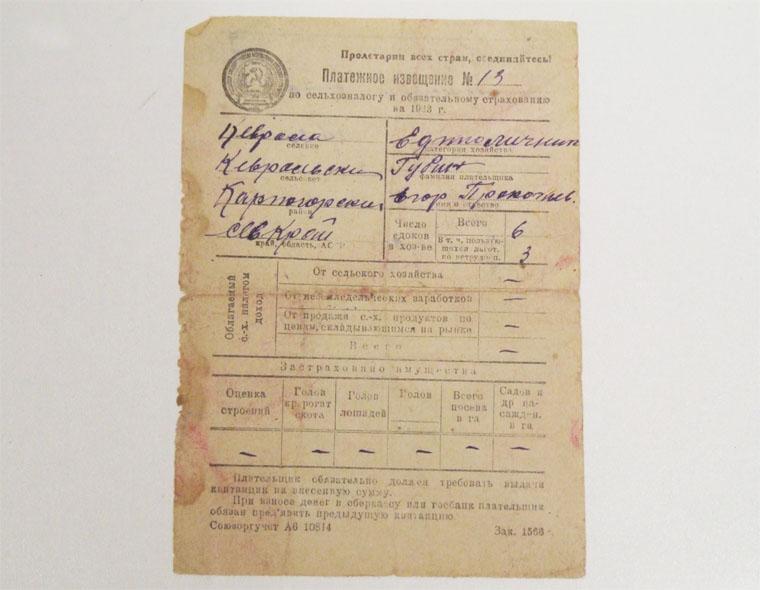 Пролетарии всех стран, соединяйтесь!
Платежное извещение № 13
по сельхозналогу и обязательному страхованию
на 1933 г.
Кеврола
селение
Кеврольский
сельсовет
Карпогорский
район
Сев Край
край, область, АССР
Единоличник
категория хозяйства
Губин
фамилия плательщика
Егор Прокопьев.
имя и отчество
Число едоков в хоз-ве
Всего 6
В т. ч. пользующихся льгот. по нетрудосп. 3
Облагаемый с.-х. налогом доход
От сельского хозяйства —
От неземледельческих заработков —
От продажи с.-х. продуктов по
ценам, складывающимся на рынке —
Всего —
Застраховано имущества
Оценка строений
Голов кр. рогат скота
Голов лошадей
Голов
Всего посева в га
Садов и др. насажден. в га
— — — — — —
Плательщик обязательно должен требовать выдачи
квитанции на внесенную сумму.
При взносе денег в сберкассу или госбанк плательщик
обязан пред'явить предыдущую квитанцию.
Союзоргучет А6 10814
Зак. 1566